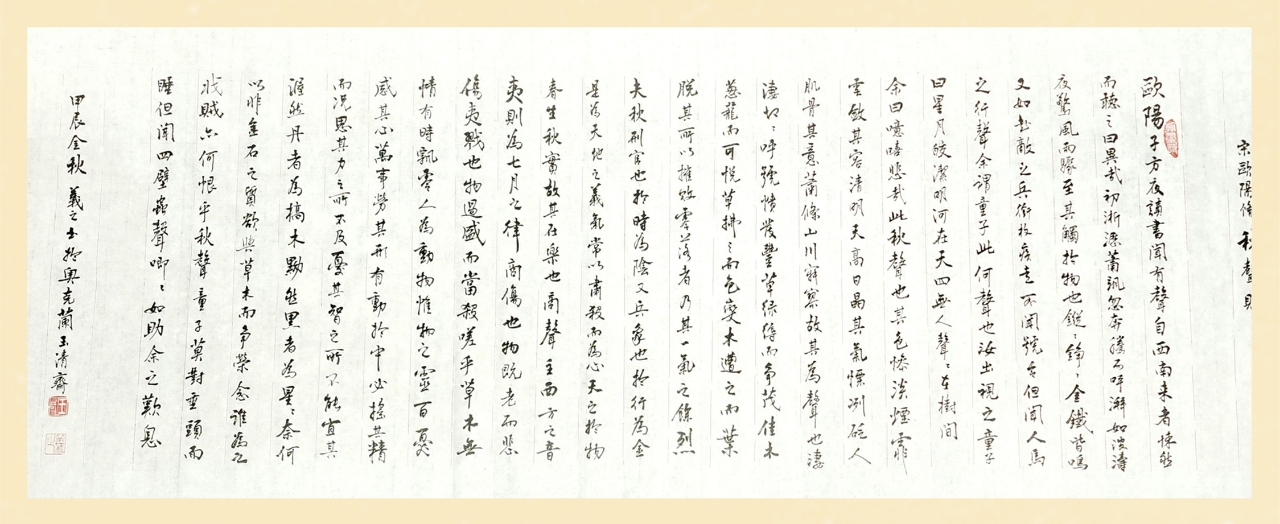 宋歐陽脩 秋聲賦
歐陽子方夜讀書聞有聲自西南来者悚然
而聽之曰異哉初淅瀝蕭颯忽奔騰而砰湃如波濤
夜驚風雨驟至其觸於物也鏦錚〻金鐵皆鳴
又如赴敵之兵銜枚疾走不聞號令但聞人馬
之行聲余謂童子此何聲也汝出視之童子
曰星月皎潔明河在天四無人聲〻在樹間
余曰噫嘻悲哉此秋聲也其色慘淡煙霏
雲斂其容清明天高日晶其氣慄冽砭人
肌骨其意蕭條山川寂寥故其為聲也淒
淒切〻呼號憤發豐草綠縟而爭茂佳木
葱蘢而可悅草拂〻而色變木遭之而葉
脫其所以摧敗零落者乃其一氣之餘烈
夫秋刑官也於時為陰又兵象也於行為金
是為天地之義氣常以肅殺而為心天之於物
春生秋實故其在樂也商聲主西方之音
夷則為七月之律商傷也物既老而悲
傷夷戮也物過盛而當殺嗟乎草木無
情有時飄零人為動物惟物之靈百憂
感其心萬事勞其形有動於中必搖其精
而況思其力之所不及憂其智之所不能宜其
渥然丹者為槁木黟然黑者為星〻奈何
以非金石之質欲與草木而爭榮念誰為之
戕賊亦何恨乎秋聲童子莫對垂頭而
睡但聞四壁蟲聲唧〻如助余之歎息
甲辰金秋 義之書於奧克蘭玉清齋